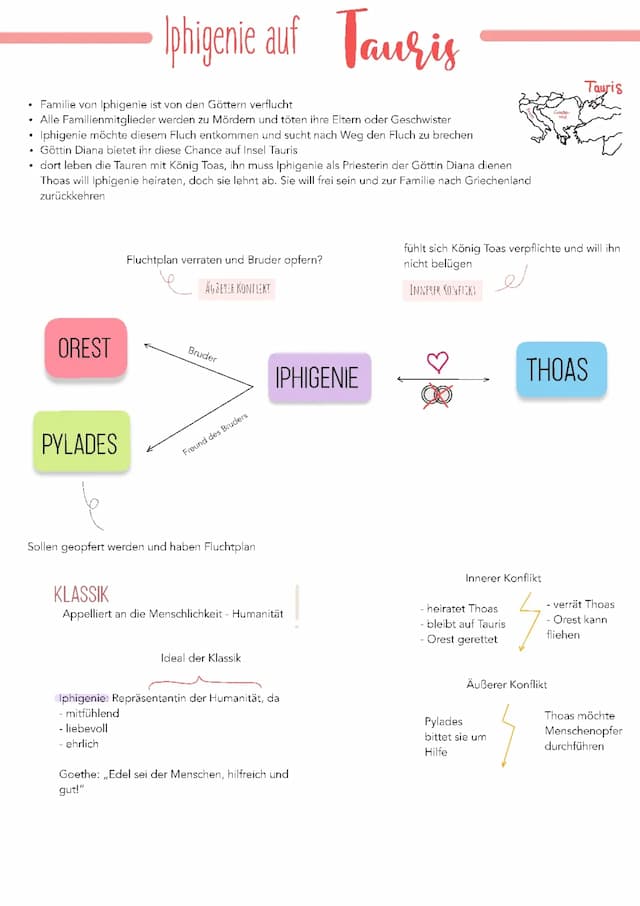 Iphigenie auf Tauris
Tauris
• Familie von Iphigenie ist von den Göttern verflucht
• Alle Familienmitglieder werden zu Mördern und töten ihre Eltern oder Geschwister
• Iphigenie möchte diesem Fluch entkommen und sucht nach Weg den Fluch zu brechen
• Göttin Diana bietet ihr diese Chance auf Insel Tauris
• dort leben die Tauren mit König Toas, ihn muss Iphigenie als Priesterin der Göttin Diana dienen
Thoas will Iphigenie heiraten, doch sie lehnt ab. Sie will frei sein und zur Familie nach Griechenland
zurückkehren
Fluchtplan verraten und Bruder opfern?
ÄUßERER KONFLIKT
fühlt sich König Toas verpflichte und will ihn
nicht belügen
INNERER KONFLIKT
OREST
Bruder
IPHIGENIE
THOAS
PYLADES
Freund des Bruders
Sollen geopfert werden und haben Fluchtplan
KLASSIK
Appelliert an die Menschlichkeit - Humanität
Ideal der Klassik
Iphigenie: Repräsentantin der Humanität, da
- mitfühlend
- liebevoll
- ehrlich
Goethe: „Edel sei der Menschen, hilfreich und
gut!“
Innerer Konflikt
- heiratet Thoas
- bleibt auf Tauris
- Orest gerettet
- verrät Thoas
- Orest kann
fliehen
Äußerer Konflikt
Pylades
bittet sie um
Hilfe
Thoas möchte
Menschenopfer
durchführen